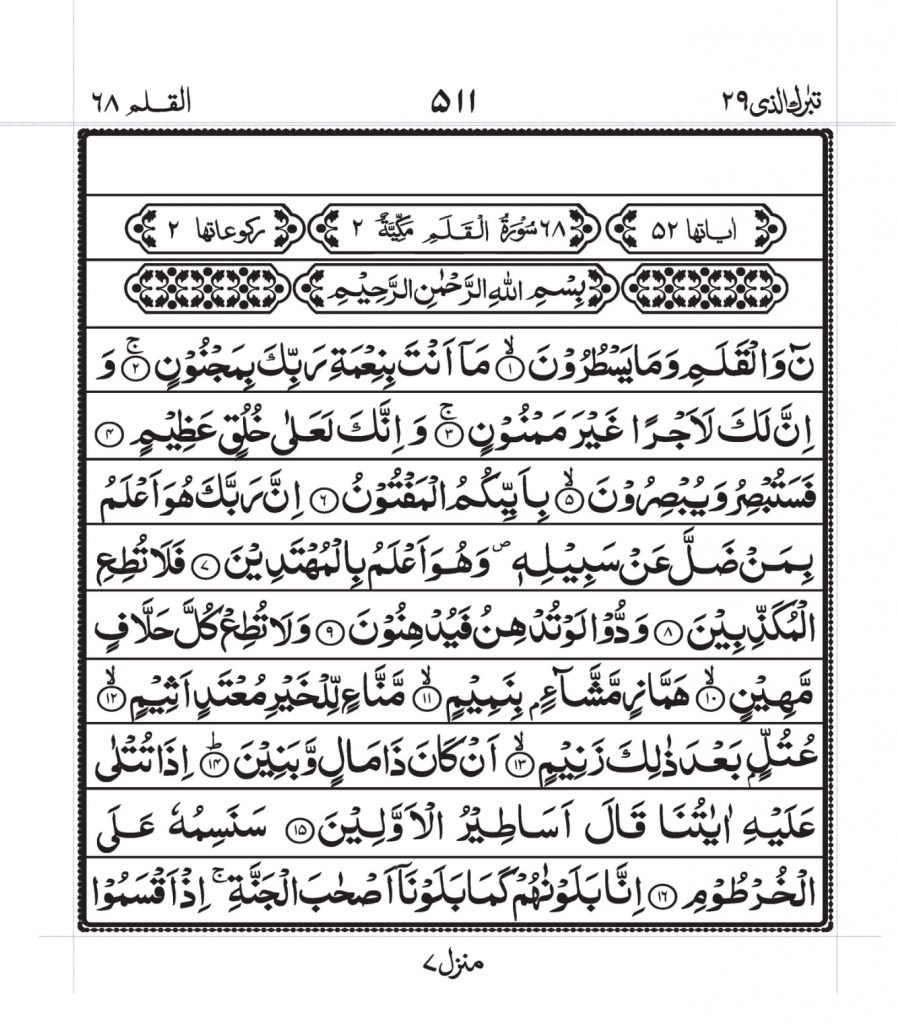 تبٰرك الذی ۲۹ ۵۱۱ القلم ۶۸
اٰیاتها ۵۲ ۶۸ سُوْرَةُ الْقَلَمِ مَکِّیَّةٌ ۲ رکوعاتها ۲
بِسْمِ اللهِ الرَّحْمٰنِ الرَّحِیْمِ
نٓ وَالْقَلَمِ وَمَا یَسْطُرُوْنَ ۙ﴿۱﴾ مَاۤ اَنْتَ بِنِعْمَةِ رَبِّكَ بِمَجْنُوْنٍ ۚ﴿۲﴾ وَ
اِنَّ لَكَ لَاَجْرًا غَیْرَ مَمْنُوْنٍ ۚ﴿۳﴾ وَ اِنَّكَ لَعَلٰی خُلُقٍ عَظِیْمٍ ﴿۴﴾
فَسَتُبْصِرُ وَیُبْصِرُوْنَ ۙ﴿۵﴾ بِاَیِّىكُمُ الْمَفْتُوْنُ ﴿۶﴾ اِنَّ رَبَّكَ هُوَ اَعْلَمُ
بِمَنْ ضَلَّ عَنْ سَبِیْلِهٖ ۪ وَهُوَ اَعْلَمُ بِالْمُهْتَدِیْنَ ﴿۷﴾ فَلَا تُطِعِ
الْمُكَذِّبِیْنَ ﴿۸﴾ وَدُّوْا لَوْ تُدْهِنُ فَیُدْهِنُوْنَ ﴿۹﴾ وَلَا تُطِعْ كُلَّ حَلَّافٍ
مَّهِیْنٍ ۙ﴿۱۰﴾ هَمَّازٍ مَّشَّآءٍۭ بِنَمِیْمٍ ۙ﴿۱۱﴾ مَّنَّاعٍ لِّلْخَیْرِ مُعْتَدٍ اَثِیْمٍ ۙ﴿۱۲﴾
عُتُلٍّۭ بَعْدَ ذٰلِكَ زَنِیْمٍ ۙ﴿۱۳﴾ اَنْ كَانَ ذَا مَالٍ وَّبَنِیْنَ ؕ﴿۱۴﴾ اِذَا تُتْلٰی
عَلَیْهِ اٰیٰتُنَا قَالَ اَسَاطِیْرُ الْاَوَّلِیْنَ ﴿۱۵﴾ سَنَسِمُهٗ عَلَی
الْخُرْطُوْمِ ﴿۱۶﴾ اِنَّا بَلَوْنٰهُمْ كَمَا بَلَوْنَاۤ اَصْحٰبَ الْجَنَّةِ ۚ اِذْ اَقْسَمُوْا
منزل ۷